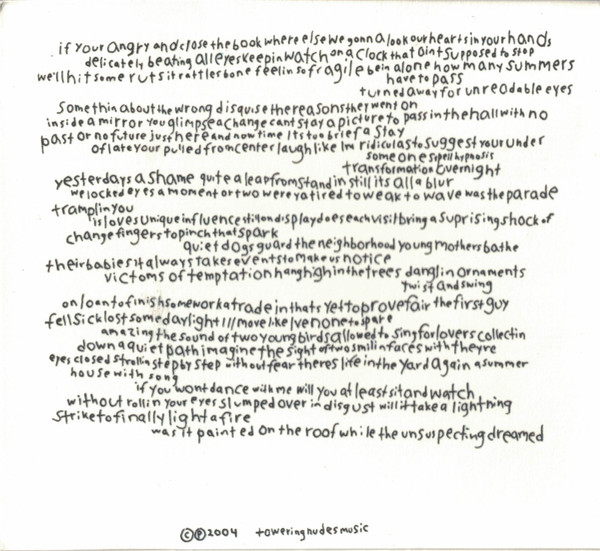 if your angry and close the book where else we gonna look our hearts in your hands
delicately beating all eyes keepin watch on a clock that aint supposed to stop
we'll hit some ruts it rattles bone feelin so fragile bein alone how many summers
have to pass
turned away for unreadable eyes
Somethin about the wrong disguise the reasons they went on
inside a mirror you glimpse a change cant stay a picture to pass in the hall with no
past or no future just here and now time Its too brief a stay
of late your pulled from center laugh like Im ridiculas to suggest your under
someones spell hypnosis
transformation overnight
yesterdays a shame quite a leap from stand in still its all a blur
we locked eyes a moment or two were ya tired to weak to wave was the parade
tramplin you
is loves unique influence still on display does each visit bring a suprising shock of
change fingers to pinch that spark
quiet dogs guard the neighborhood young mothers bathe
their babies it always takes events to make us notice
victoms of temptation hang high in the trees danglin ornaments
twist and swing
on loan to finish some work a trade in thats yet to prove fair the first guy
fell sick lost some daylight I'll move like Ive none to spare
amazing the sound of two young birds allowed to sing for lovers collectin
down a quiet path imagine the sight of two smilin faces with theyre
eyes closed strollin step by step without fear theres life in the yard again a summer
house with song
if you wont dance with me will you at least sit and watch
without rollin your eyes slumped over in disgust will it take a lightning
strike to finally light a fire
was it painted on the roof while the unsuspecting dreamed
©℗2004 toweringnudesmusic